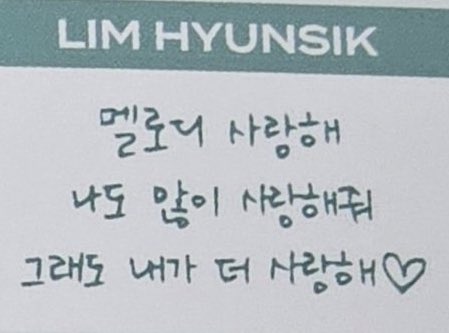 LIM HYUNSIK
멜로디 사랑해
나도 많이 사랑해줘
그래도 내가 더 사랑해♡